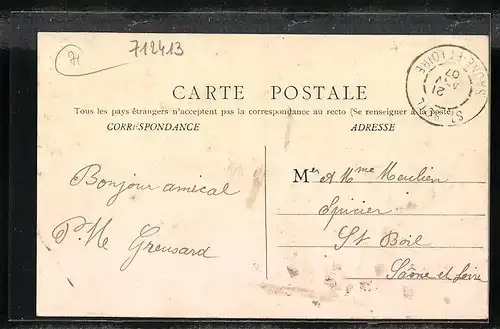 71
712413
CARTE POSTALE
Tous les pays étrangers n'acceptent pas la correspondance au recto (Se renseigner à la poste)
CORRESPONDANCE
ADRESSE
SAONE-ET-LOIRE
21
07
ST
Bonjour amical
P. Me Greusard
Mer & Mme Meulien
Epicier
St Boil
Saône et Loire